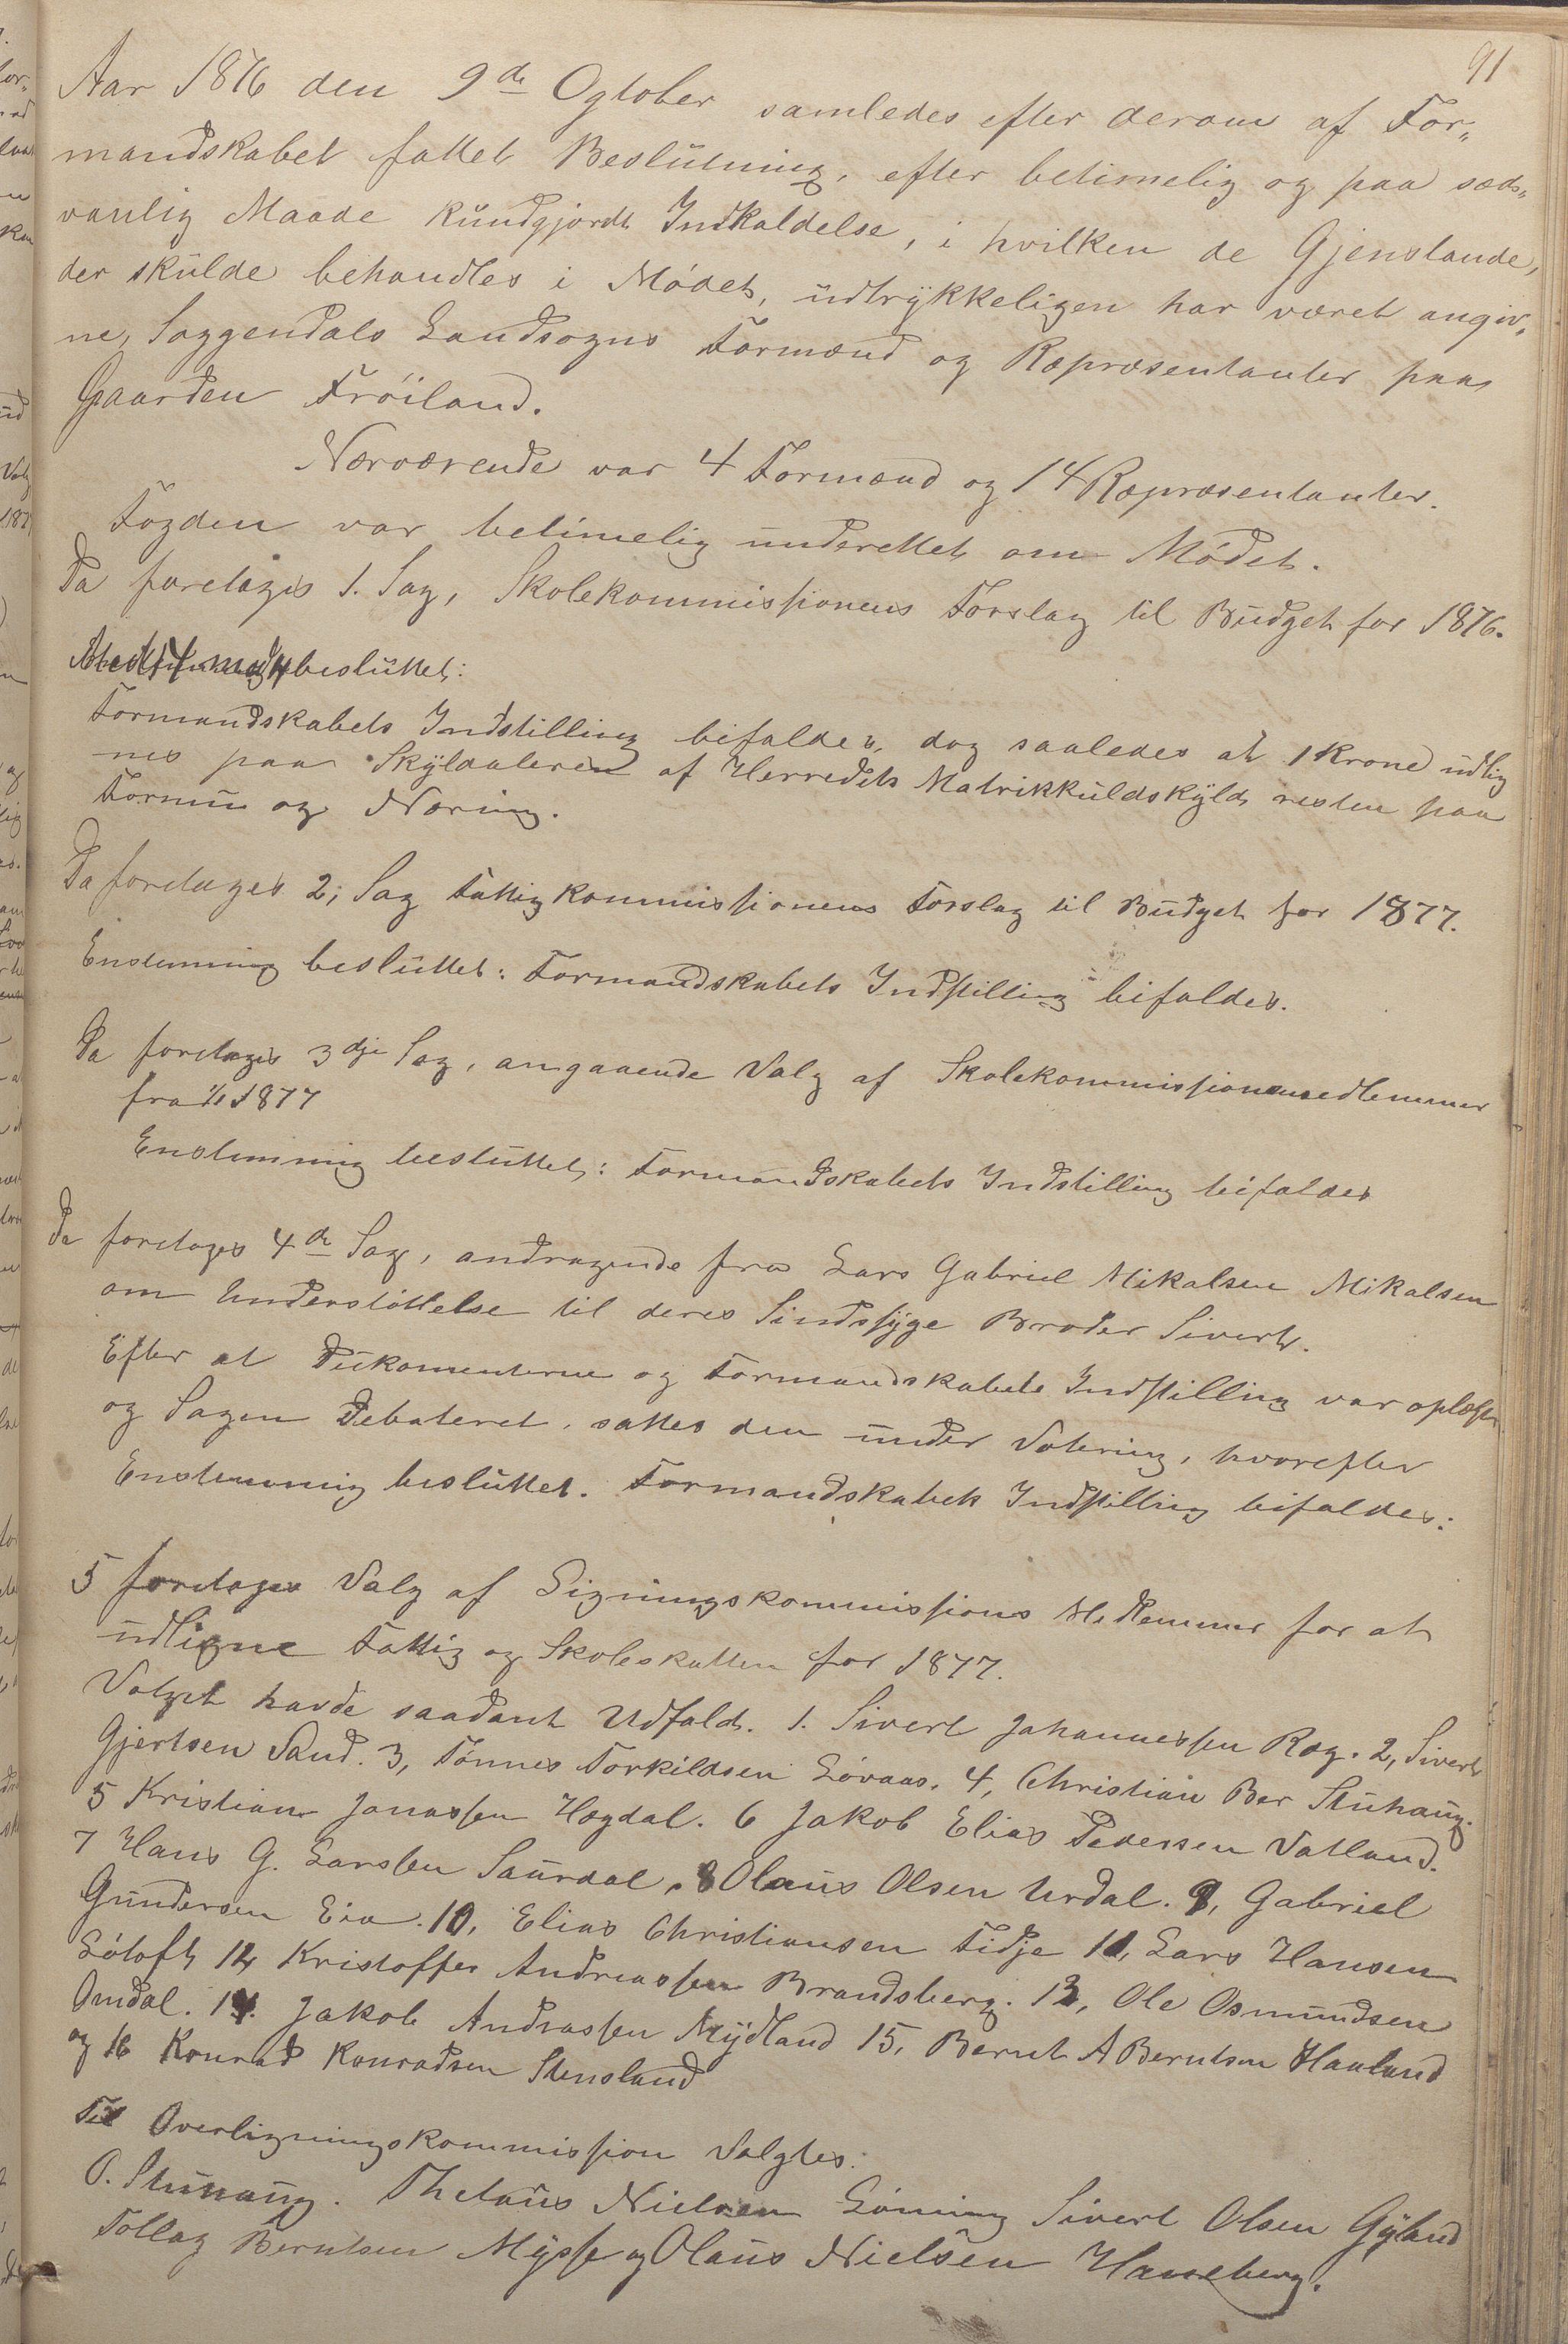 91
Aar 1876 den 9de Ogtober samledes efter derom af For„
mandskabet fattet Beslutning, efter betimelig og paa sæd„
vanlig Maade kundgjordt Indkaldelse, i hvilken de Gjenstande,
der skulde behandles i Mødet, udtrykkeligen har været angiv„
ne, Soggendals Landsogns Formænd og Repræsentanter paa
Gaarden Frøiland.
Nærværende var 4 Formænd og 14 Repræsentanter.
Fogden var betimelig underettet om Mødet.
Da foretoges 1. Sag, Skolekommissionens Forslag til Budget for 1876.
besluttet:
Formandskabets Indstilling bifaldes, dog saaledes at 1 Krone udlig
nes paa Skyldaleren af Herredets Matrikkulskyld resten paa
Formu og Næring.
Da foretages 2; Sag Fattigkommissionens Forslag til Budget for 1877.
Enstemmig besluttet: Formandskabets Indstilling bifaldes.
Da foretages 3dje Sag, angaaende Valg af Skolekommissionsmedlemmer
fra 1/1 1877
Enstemmig besluttet: Formandskabets Indstilling bifaldes
Da foretages 4de Sag, andragende fra Lars Gabriel Mikalsen Mikalsen
om Understøttelse til deres Sindssyge Broder Sivert.
Efter at Dukomenterne og Formandskabets Indstilling var oplæst
og Sagen Debateret, sattes den under Votering, hvorefter
Enstemmig besluttet. Formandskabets Indstilling bifaldes:
5 foretages Valg af Ligningskommissions Medlemmer for at
udligne Fattig og Skoleskatten for 1877.
Valget havde saadant Udfald. 1. Sivert Johannessen Rog. 2, Sivert
Gjertsen Sand. 3, Tønnes Torkildsen Løvaas. 4, Christian Ber Stuhaug.
5 Kristian Jonassen Hogdal. 6 Jakob Elias Pedersen Vatland.
7 Hans G. Larssen Saurdal, 8 Olaus Olsen Urdal. 9, Gabriel
Gundersen Eia. 10, Elias Christiansen Fidje 11, Lars Hansen
Løtoft 12 Kristoffer Andreassen Brandsberg. 13, Ole Osmundsen
Omdal. 14. Jakob Andreassen Mydland 15, Bernt A Berntsen Haaland
og 16 Konrad Konradsen Stensland
Til Overligningskommission Valgtes:
O. Stuhaug. Thetaus Nielsen Løning Sivert Olsen Gyland
Tollag Berntsen Mysse og Olaus Nielsen Haneberg.